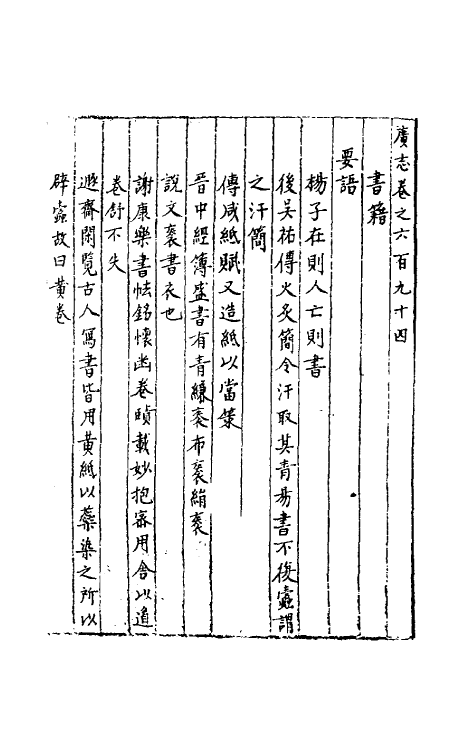 廣志卷之六百九十四
書籍
要語
楊子在則人亡則書
後吳祐傳火炙簡令汗取其青易書不復蠧謂
之汗簡
傅咸紙賦又造紙以當策
晉中經簿盛書有青縑袠布袠絹袠
說文袠書衣也
謝康樂書帙銘懷幽卷賾載妙抱密用舍以道
卷舒不失
遯齋閑覽古人寫書皆用黃紙以蘗染之所以
辟蠧故曰黃卷